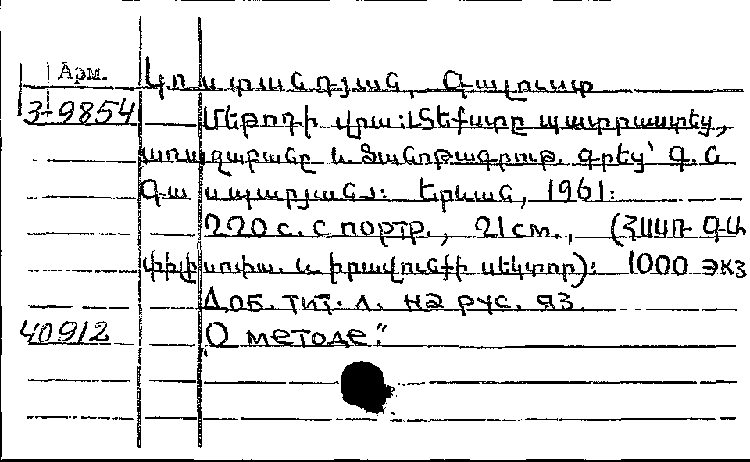 Арм.
Կոստանդյան, Գալուստ
3-9854 Մեթոդի մրա: [Տեքստը պատրաստեց,
առաջաբանը և ծանոթագրութ. գրեց՝ Գ. Ն
Գասպարյանը: Երևան, 1961:
220 с. с портр., 21 см., (ՀՍՍՌ ԳԱ
փիլիսոփա. և իրավունքի սեկտոր): 1000 экз
Доб. тит. л. на рус. яз.
40912 "О методе."